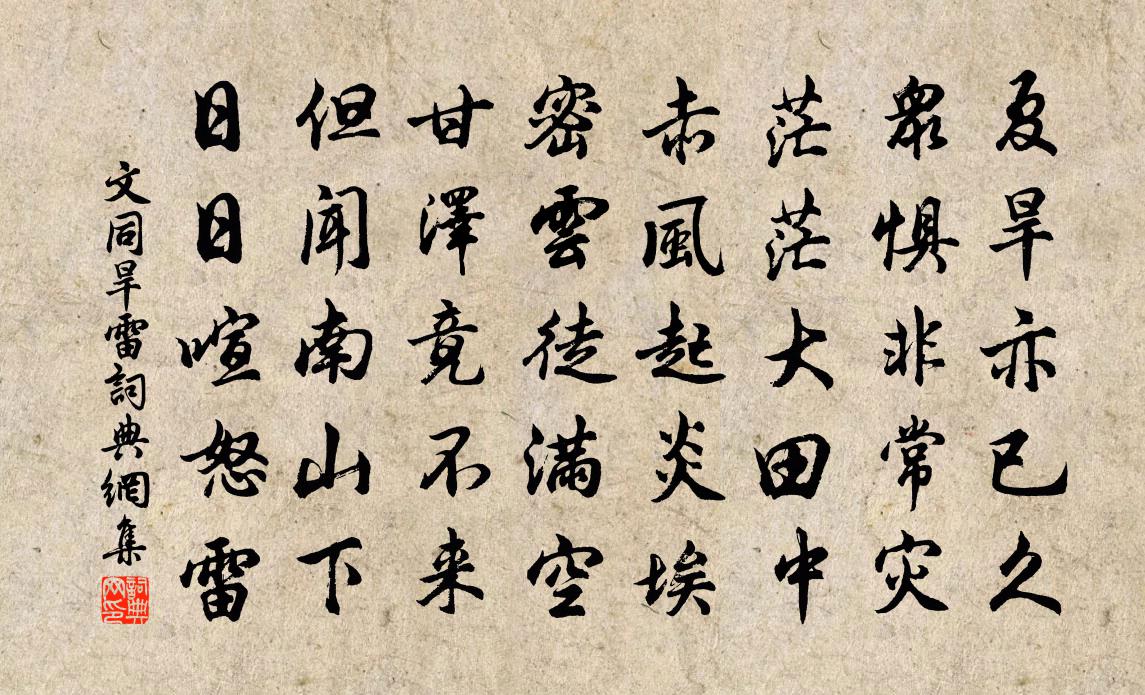 夏旱亦已久
衆惧非常灾
茫茫大田中
赤風起炎埃
密雲徒满空
甘澤竟不来
但闻南山下
日日喧怒雷
文同旱雷詞典網集
詞典网印